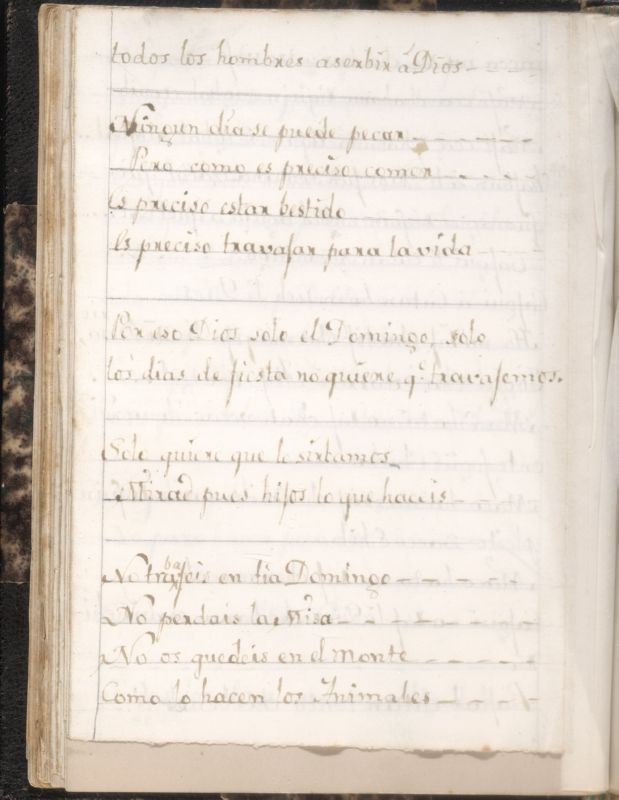 todos los hombres aserbir â Dios - - - -
Ningun dia se puede pecar - - - - - -
Pero como es preciso comer - - - -
Es preciso estar bestido
Es preciso travajar para la vida -
Por eso Dios solo el Domingo, solo
los dias de fiesta no quiere, q.e travajemos.
Solo quiere que le sirbamos -
Mirad pues hijos lo que haceis - - - -
No trabajeis en dia Domingo - - - - - -
No perdais la Misa - - - - - - -
No os quedeis en el monte - - - - -
Como lo hacen los Animales - - - -